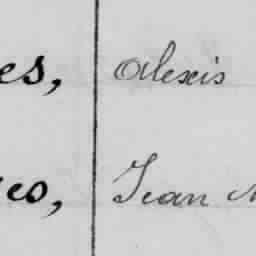 es, Alexis
es, Jean